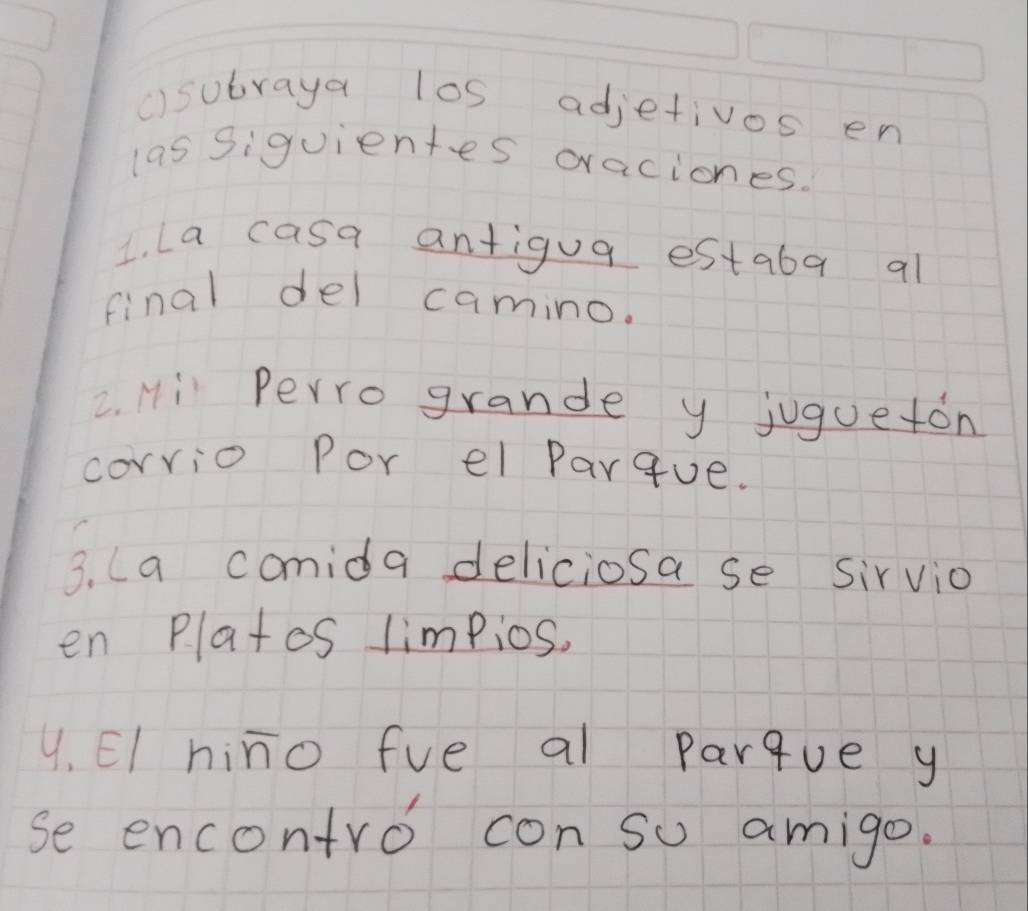 c) subraya los adjetivos en
las siguientes oraciones.
1. La casa antigua estaba al
final del camino.
2. Mi Perro grande y juguetón
corrio Por el Parque.
3. La comida deliciosa se sirvio
en Platos limpios.
4. El niño fue al Parque y
se encontró con su amigo.